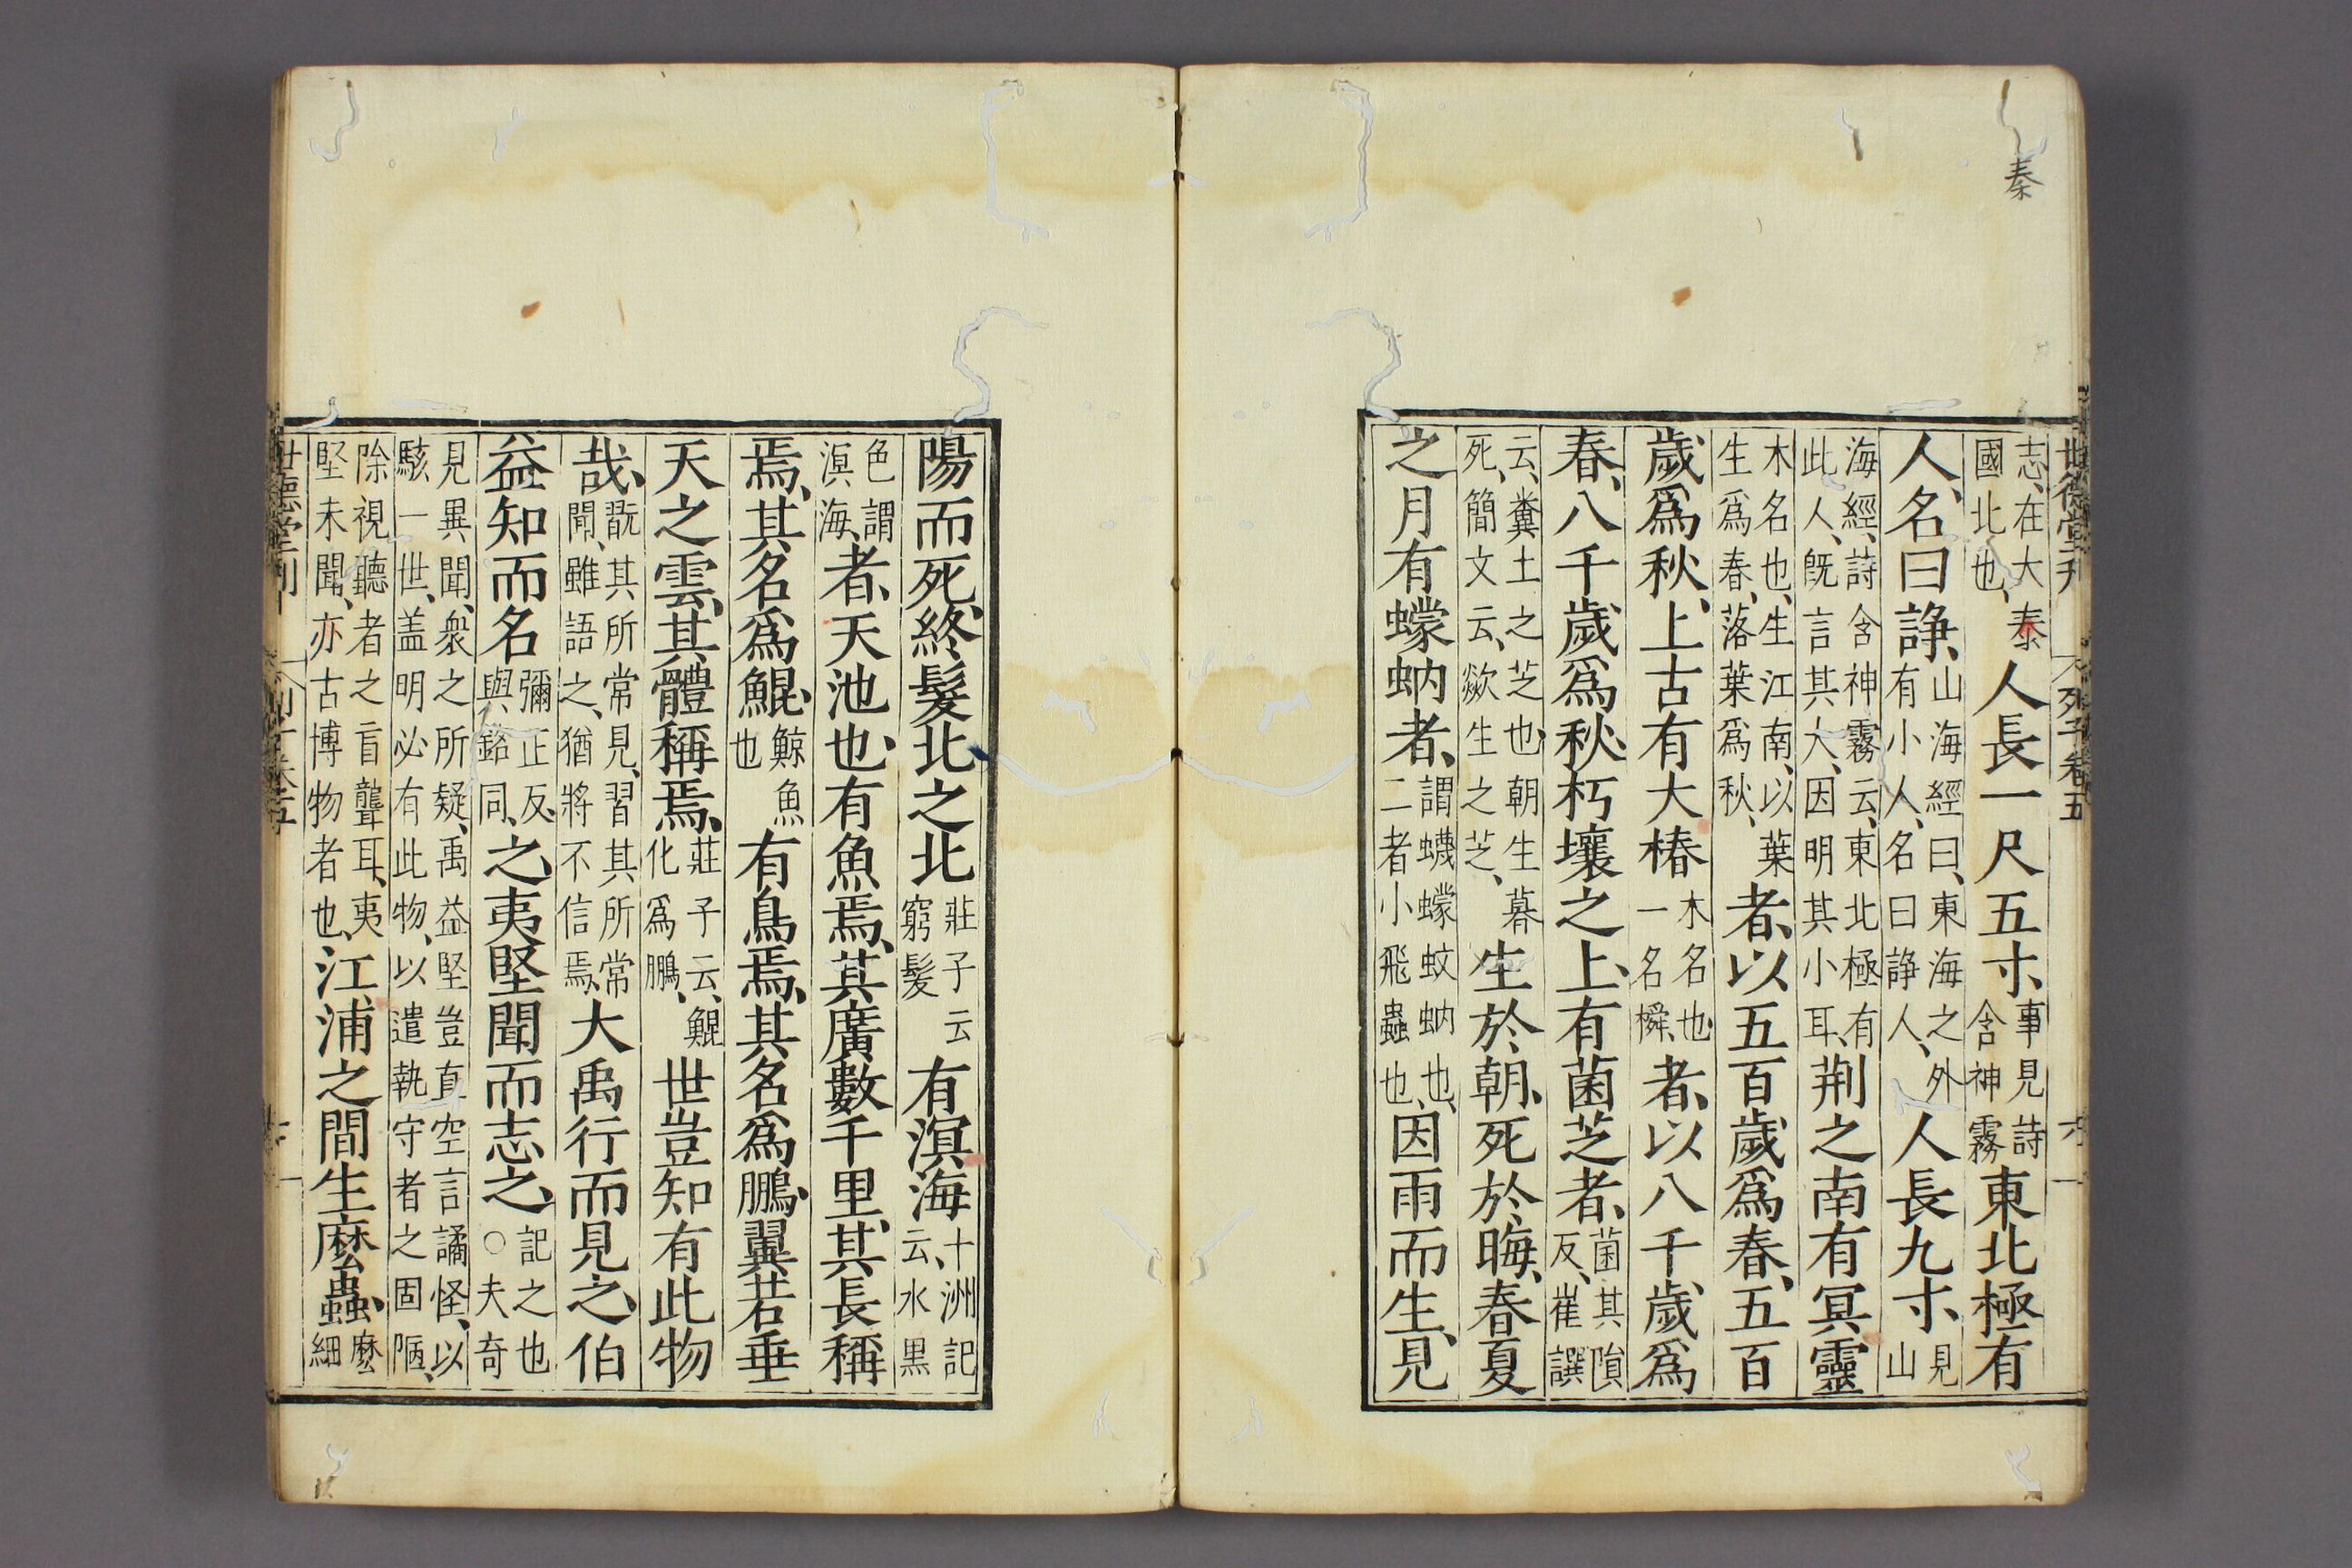 秦
世德堂刊 列子卷五 六
志、在大秦國北也、人長一尺五寸、事見詩含神霧東北極有
人、名曰諍、山海經曰、東海之外有小人、名曰諍人、人長九寸、見山
海經、詩含神霧云、東北極有此人、旣言其大、因明其小耳、荆之南有冥靈
木名也、生江南、以葉生爲春、落葉爲秋、者、以五百歲爲春、五百
歲爲秋、上古有大椿木名也、一名橓、者、以八千歲爲
春、八千歲爲秋、朽壤之上、有菌芝者、菌其隕反、崔譔
云、糞土之芝也、朝生暮死、簡文云、欻生之芝、生於朝、死於晦、春夏
之月有蠓蚋者、謂蠛蠓蚊蚋也、二者小飛蟲也、因雨而生、見
陽而死、終髮北之北莊子云窮髮有溟海十洲記云、水黑
色謂溟海、者、天池也、有魚焉、其廣數千里、其長稱
焉、其名爲鯤、鯨魚也有鳥焉、其名爲鵬、翼若垂
天之雲、其體稱焉、莊子云、鯤化爲鵬、世豈知有此物
哉、翫其所常見、習其所常聞、雖語之、猶將不信焉、大禹行而見之、伯
益知而名彌正反、與銘同、之、夷堅聞而志之、記之也○夫奇
見異聞、衆之所疑、禹益堅豈直空言譎怪、以駭一世、盖明必有此物、以遣執守者之固陋、
除視聽者之盲聾耳、夷堅未聞、亦古博物者也、江浦之間生麼蟲、麼細
世德堂刊 列子卷五